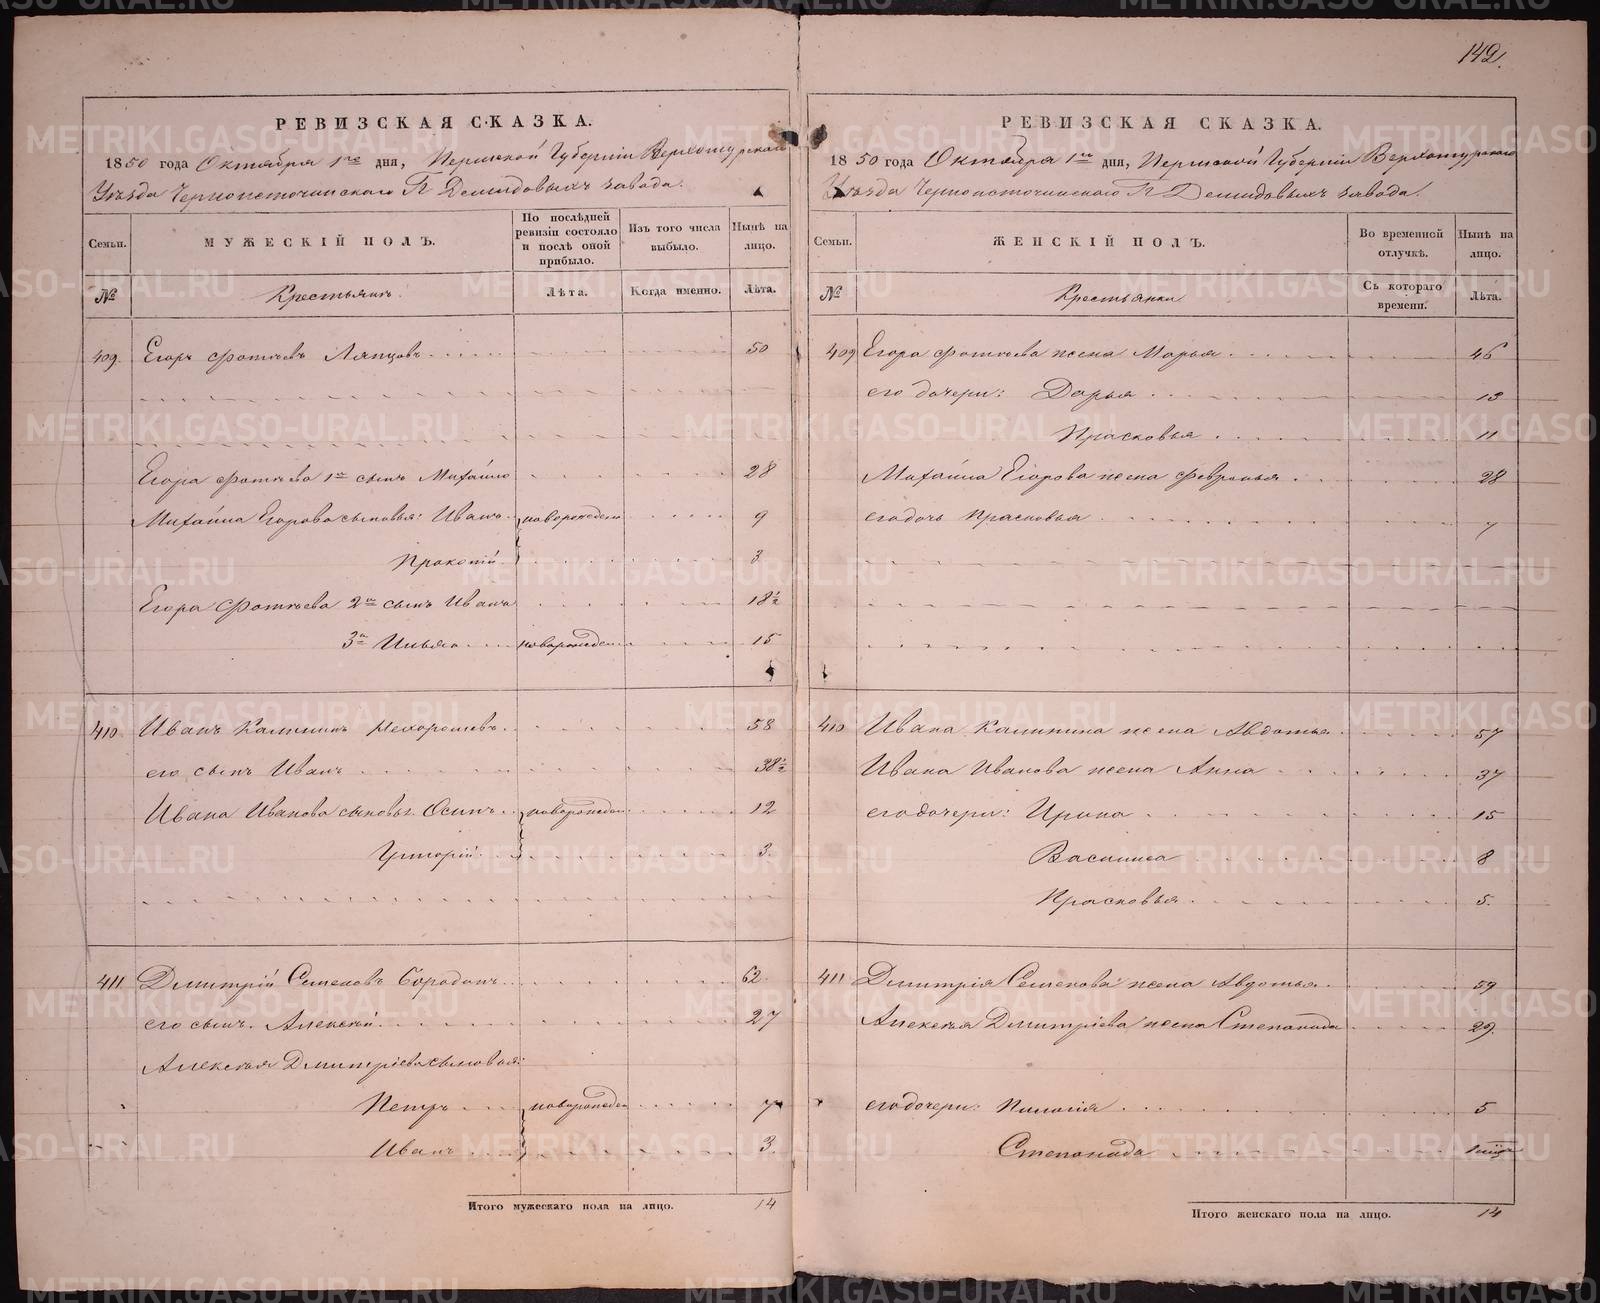 142.
РЕВИЗСКАЯ СКАЗКА.
1850 года Октября 1го дня, Пермской Губернии Верхотурскаго
Уѣзда Черноисточинскаго Г. Демидовыхъ завода.
Семьи. МУЖЕСКІЙ ПОЛЪ. По послѣдней ревизіи состояло и послѣ оной прибыло. Изъ того числа выбыло. Нынѣ на лицо.
№ Крестьянъ. Лѣта. Когда именно. Лѣта.
409. Егоръ Фотѣевъ Ляпцовъ 50
Егора Фотѣева 1й сынъ Михайло 28
Михайла Егорова сыновья: Иванъ новорожден 9
Прокопій 3
Егора Фотѣева 2й сынъ Иванъ 18½
3й Илья новорожден 15
410 Иванъ Калининъ Нехорошевъ 58
его сынъ Иванъ 38½
Ивана Иванова сыновья. Осипъ новорожден 12
Григорій 3
411 Дмитрій Семеновъ Бородинъ 62
его сынъ. Алексѣй 27
Алексѣя Дмитріева сыновья:
Петръ новорожден 7
Иванъ 3
Итого мужескаго пола на лицо. 14
РЕВИЗСКАЯ СКАЗКА.
1850 года Октября 1го дня, Пермской Губерніи Верхотурскаго
Уѣзда Черноисточинскаго Г. Демидовыхъ завода.
Семьи. ЖЕНСКІЙ ПОЛЪ. Во временной отлучкѣ. Нынѣ на лицо.
№ Крестьянки Съ котораго времени. Лѣта.
409 Егора Фотѣева жена Марья 46
его дочери: Дарья 13
Прасковья 11
Михайла Егорова жена Февронья 28
его дочь Прасковья 7
410 Ивана Калинина жена Авдотья 57
Ивана Иванова жена Анна 37
его дочери: Ирина 15
Василиса 8
Прасковья 5.
411 Дмитрія Семенова жена Авдотья 59
Алексѣя Дмитріева жена Степанида 29.
его дочери: 5
Степанида
Итого женскаго пола на лицо. 14
METRIKI.GASO-URAL.RU